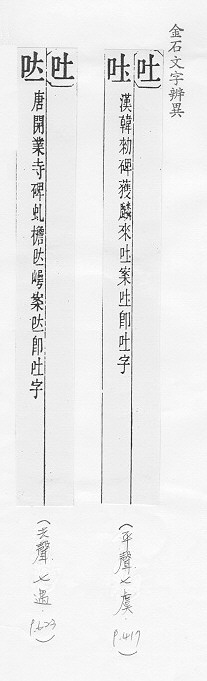 金石文字辨異
吐
漢韓勑碑獲麟來吐案吐即吐字
(平聲.七虞.p.417)
吐
唐開業寺碑虬檐呔嶋案呔即吐字
(去聲.七遇.p.623)